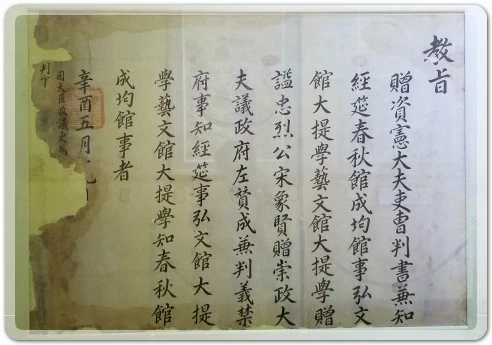 教旨
贈資憲大夫吏曹判書兼知
經筵春秋館成均館事弘文
館大提學藝文館大提學贈
諡忠烈公宋象賢贈崇政大
夫議政府左贊成兼判義禁
府事知經筵事弘文館大提
學藝文館大提學知春秋館
成均館事者
辛酉五月
因大臣收議
判下